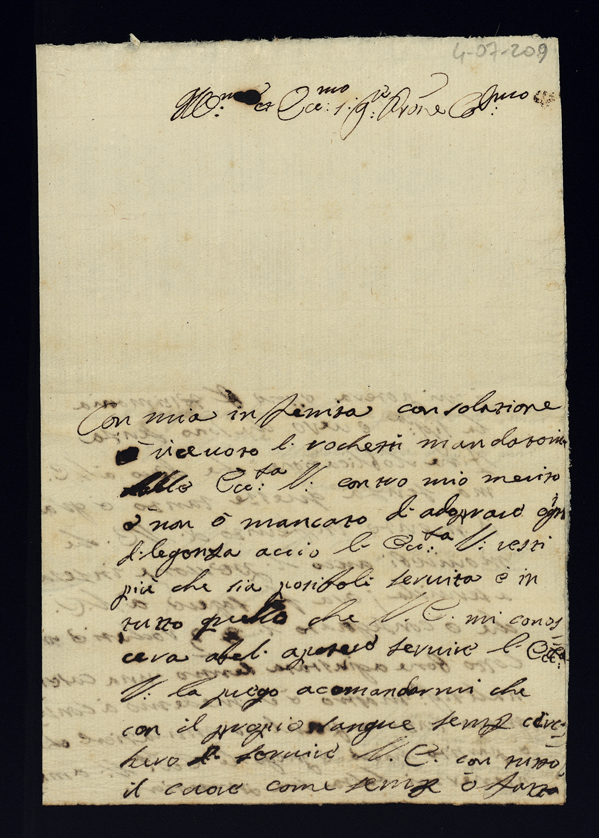 4-07-209
Ill.mo et Ecc.mo s.r g.re Prone Col.mo
Con mia infenita consolatione
ò riceuoto li rochetti mandatomi
dalle Ecc.ta V: contro mio merito
e non ò mancato di adoprare ogni
diligenza accio l: Ecc.ta V: resti
più che sia posiboli seruita e in
tutto quello che V: E: mi conos
cera abel: a poterò seruire l: Ecc.a
V: la prego acomandarmi che
con il proprio sangue semp cirv=
hero di seruire V: E: con tutto
il cuore come semp ò fatto